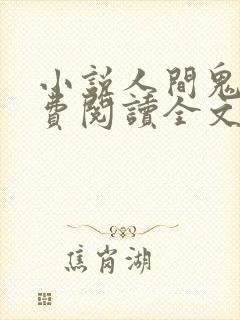 小說人間鬼
費閱讀全文
焦岗湖